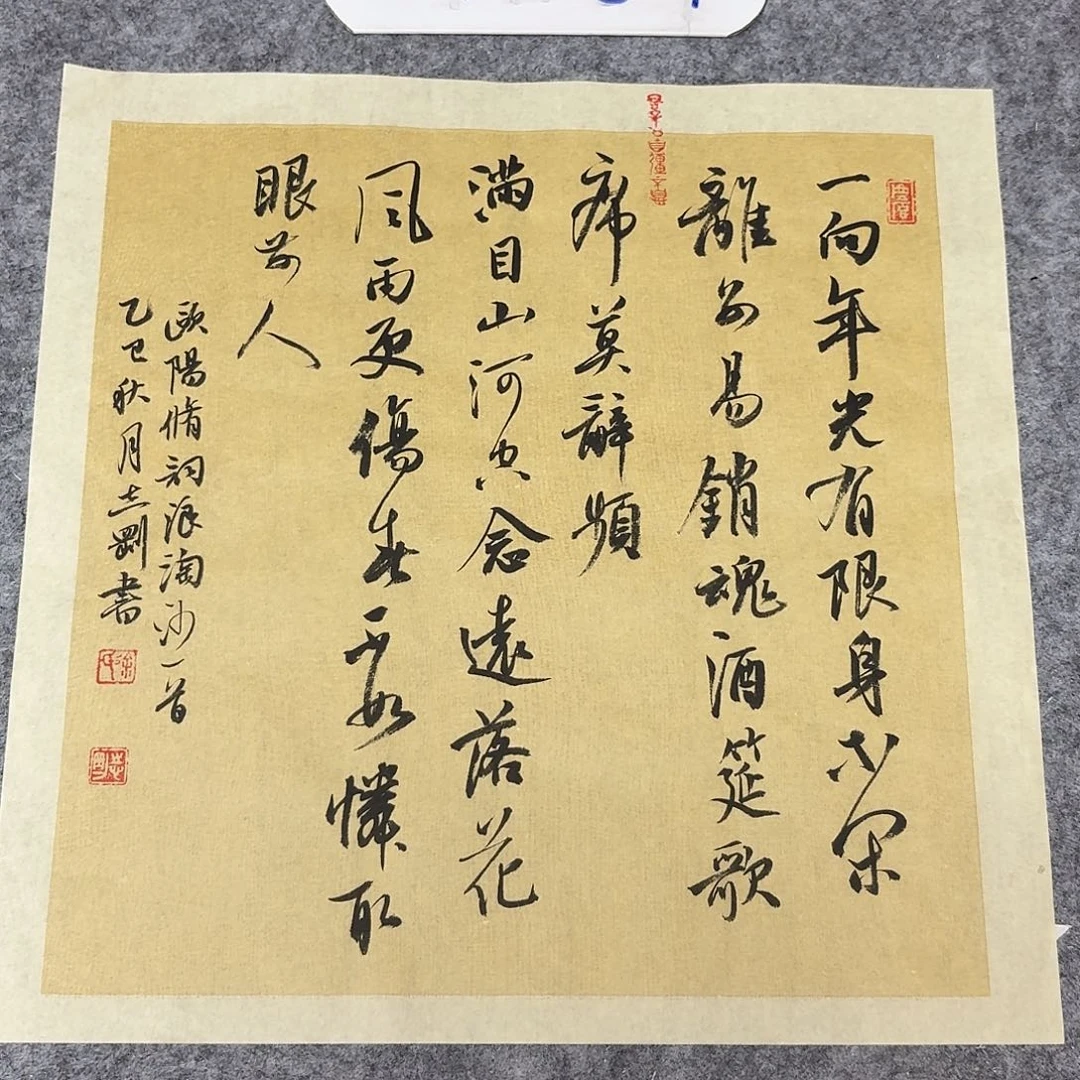 一向年光有限身等閑
離別易銷魂酒筵歌
席莫辭頻
滿目山河空念遠落花
風雨更傷春不如憐取
眼前人
歐陽脩詞浪淘沙一首
乙巳秋月志剛書
徐氏